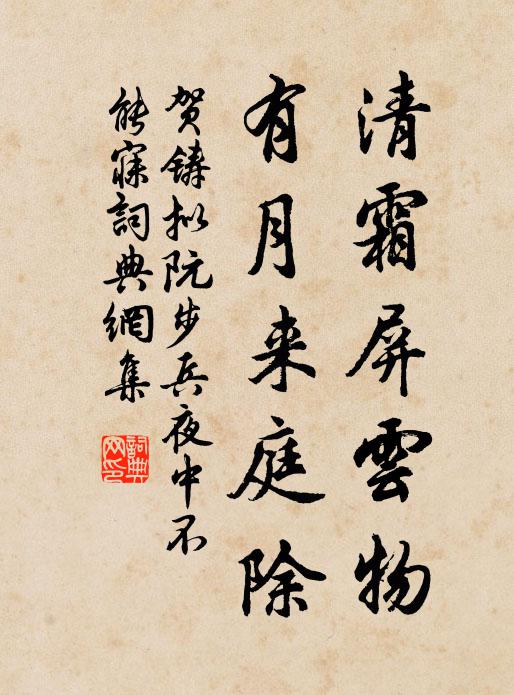 清霜屏雲物
有月来庭除
贺鑄拟阮步兵夜中不
能寐詞典網集
詞典
网印